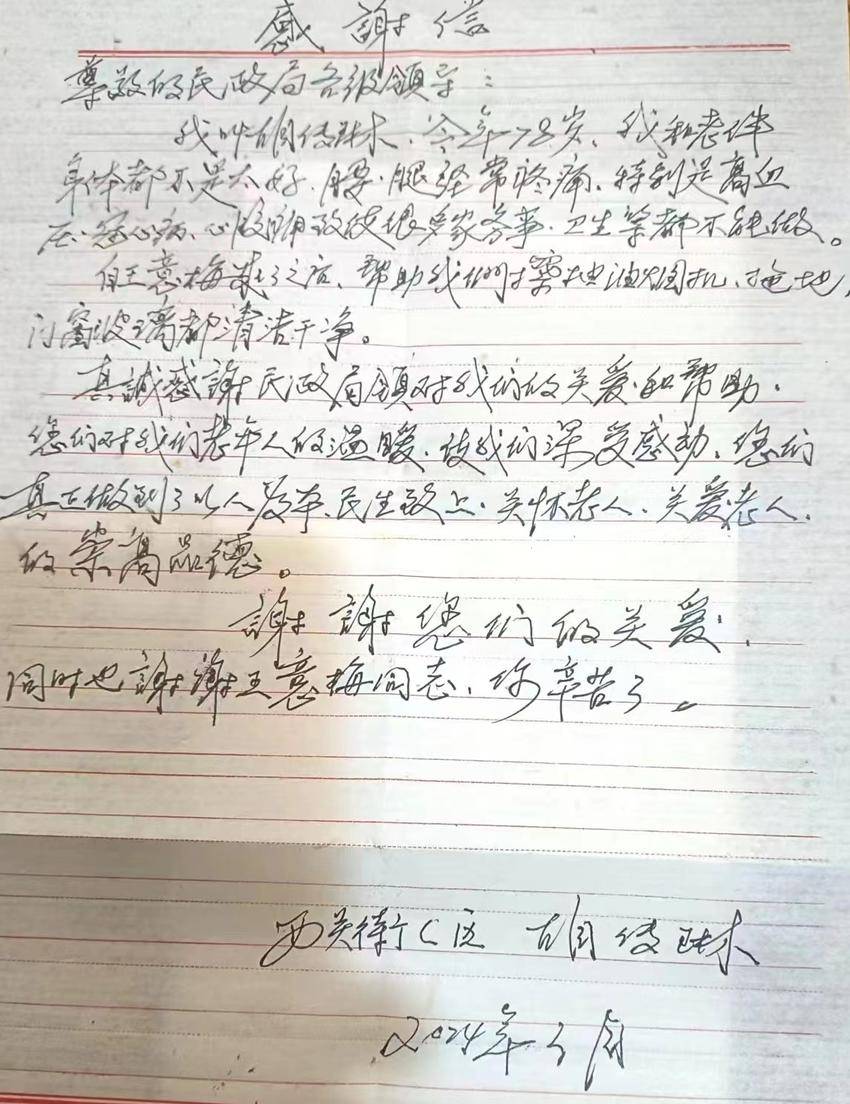 感謝信
尊敬的民政局各级領导：
我叫胡俊琳、今年78岁、我和老伴
身体都不是太好、腰、腿经常疼痛、特别是高血
压、冠心病、心脏病致使很多家务事、卫生等都不能做。
自王意梅来了之后、帮助我们擦抽油烟机、拖地、
门窗玻璃都清洁干净。
真誠感謝民政局領对我们的关爱和帮助．
您们对我们老年人的温暖、使我们深受感动、您们
真正做到了以人为本、民生致上、关怀老人、关爱老人、
的崇高品德。
謝謝您们的关爱．
同时也謝謝王意梅同志、你辛苦了。
西关街C区 胡俊琳
2024年3月